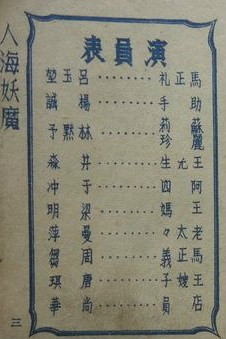 人海妖魔
演員表
馬正礼‥‥‥‥呂玉堃
助手‥‥‥‥楊誠
蘇莉
麗珍‥‥‥‥林默予
王尤生‥‥‥‥井淼
阿四‥‥‥‥于冲
王媽‥‥‥‥梁明
老太々‥‥‥‥曼萍
馬正義‥‥‥‥周芻
王嫂子‥‥‥‥唐琪
店員‥‥‥‥尚華
三